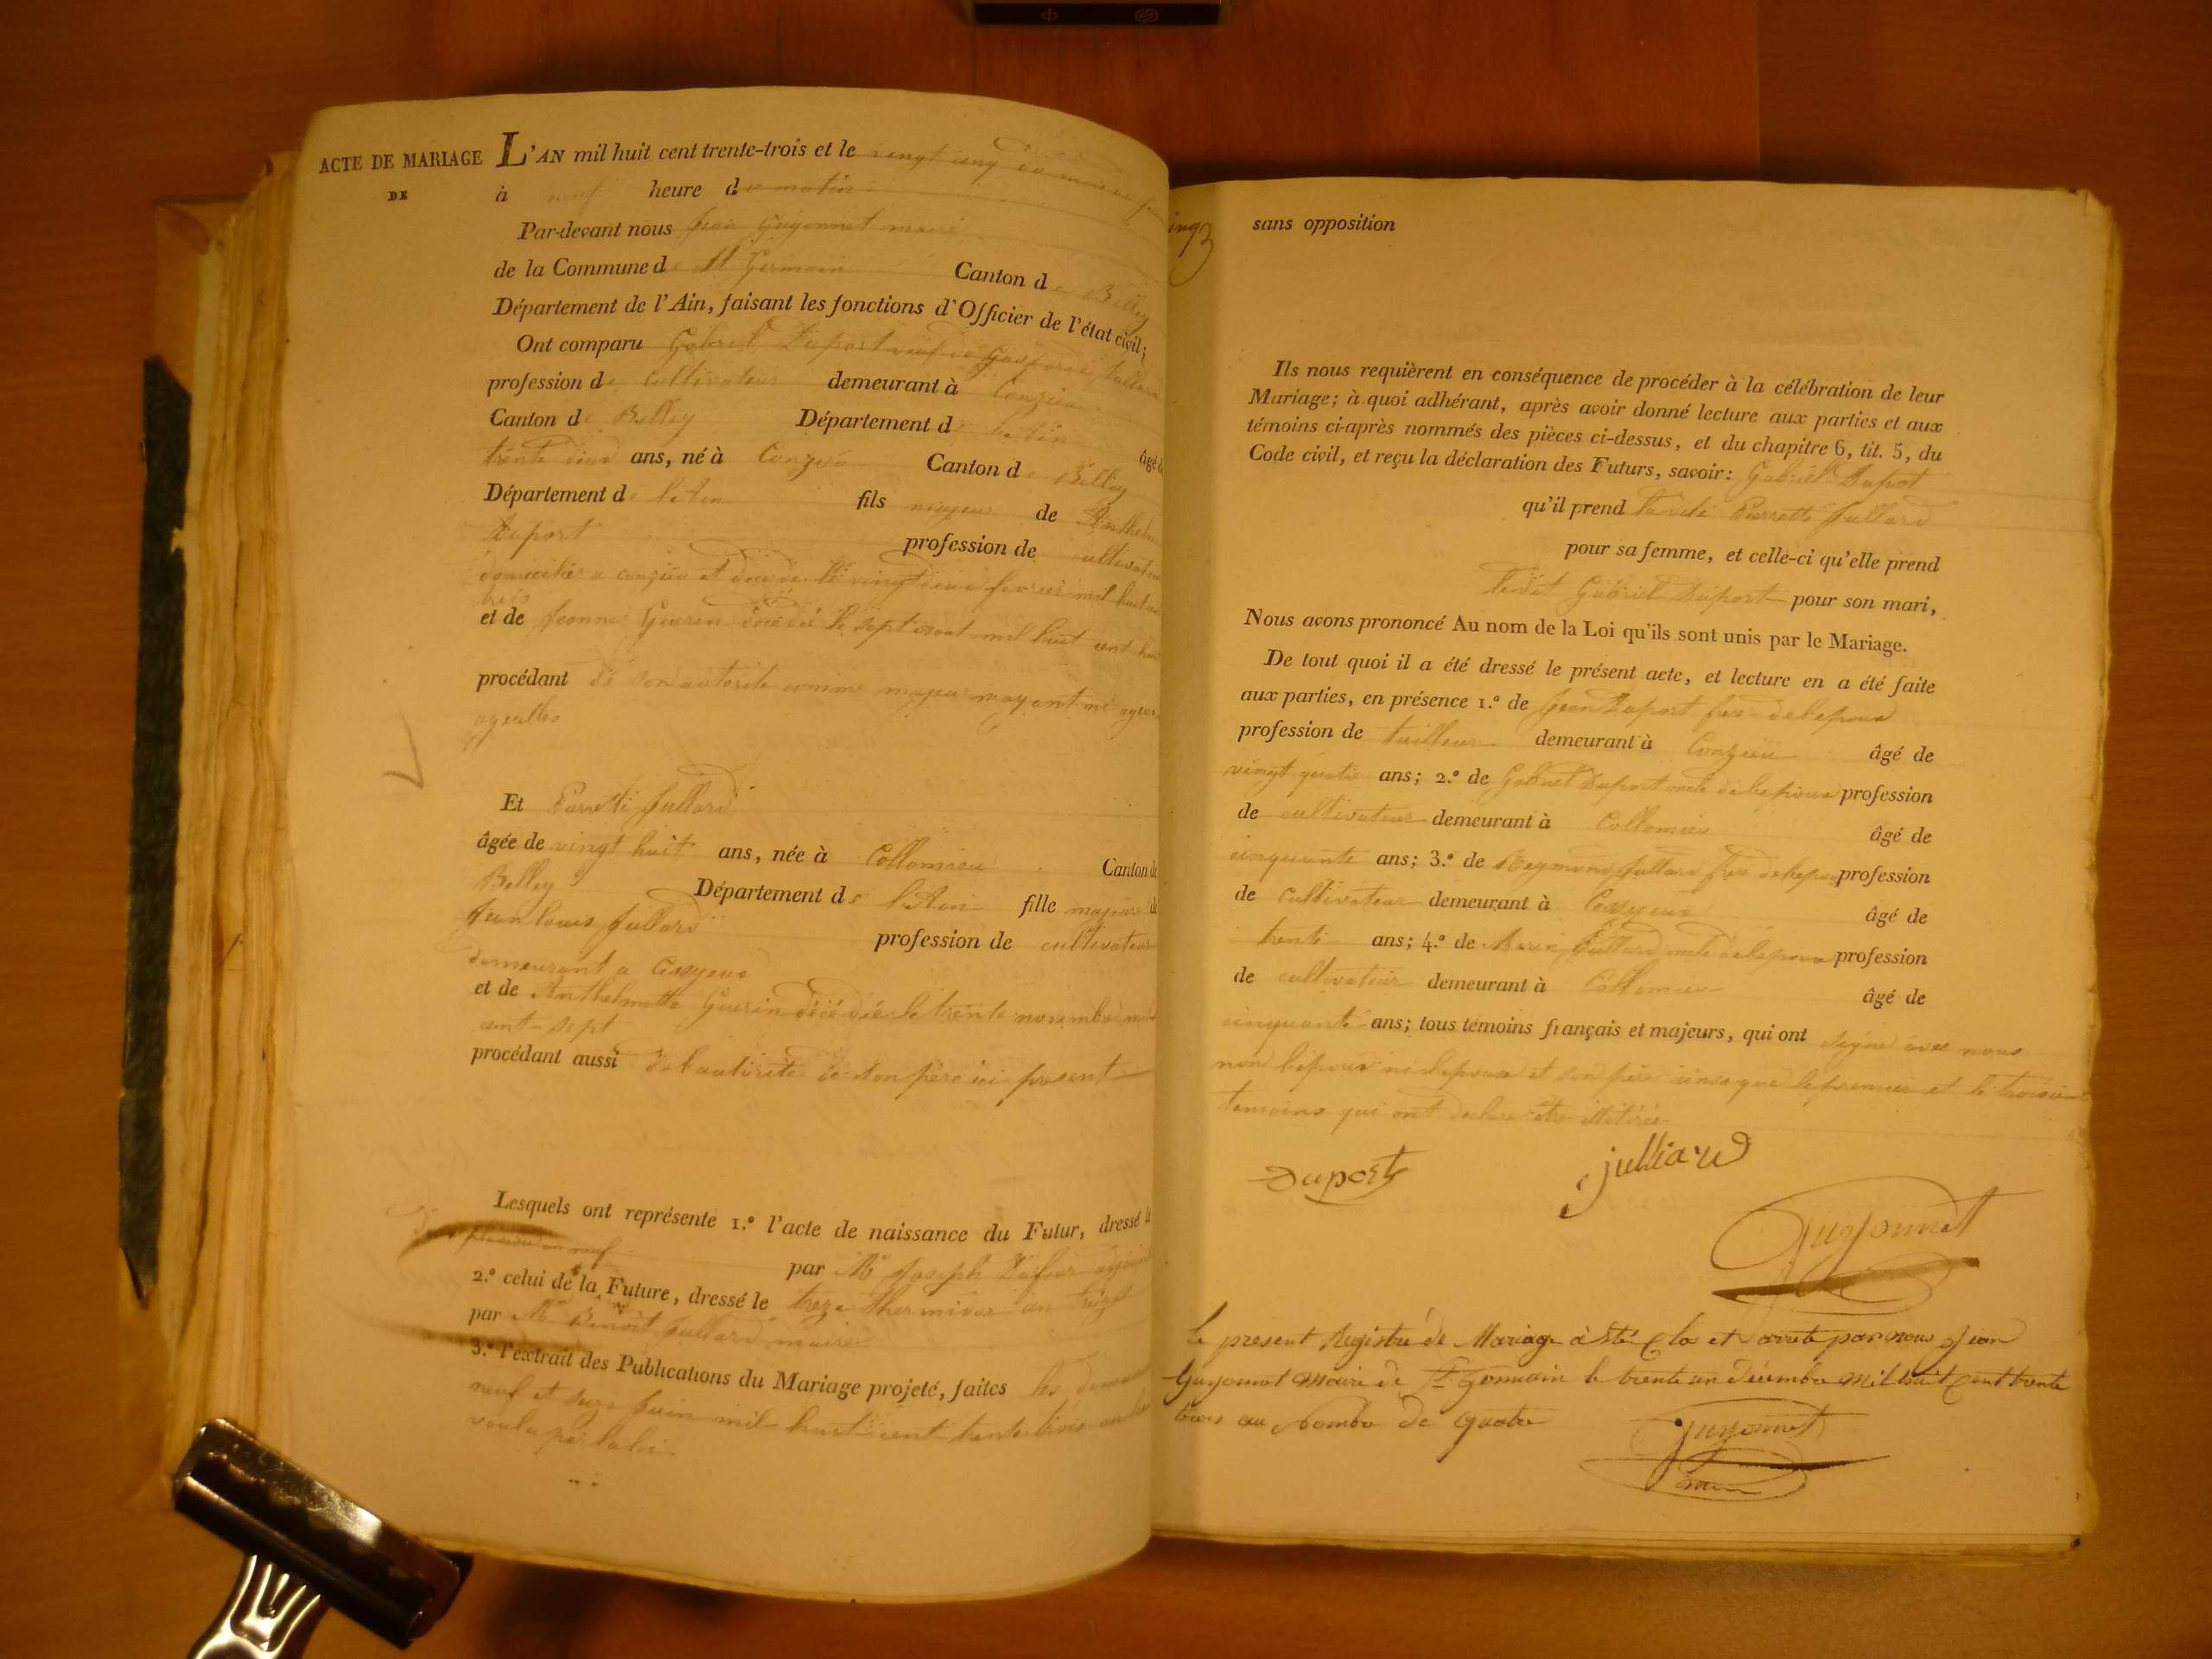 ACTE DE MARIAGE
DE
L'AN mil huit cent trente-trois et le vingt cinq du mois de
à neuf heure du matin
Par-devant nous Jean Guyonnet maire
de la Commune de St Germain Canton de Belley
Département de l'Ain, faisant les fonctions d'Officier de l'état civil;
Ont comparu Gabriel Duport veuf de
profession de cultivateur demeurant à Conzieu
Canton de Belley Département de l'ain âgé de
trente deux ans, né à Conzieu Canton de Belley
Département de l'Ain fils majeur de Anthelme
Duport profession de cultivateur
domicilié a conzieu et décédé le vingt deux fevrier mil huit cent
trois
et de Jeanne Guerin décédé le sept aout mil huit cent huit
procédant de son autorité comme majeur nayant ni
ayeulles
Et Perrette Jullard
âgée de vingt huit ans, née à Collomieu Canton de
Belley Département de l'Ain fille majeure de
Jean louis Jullard profession de cultivateur
demeurant a Cessyeux
et de Anthelmette Guerin décédée le trente novembre mil
cent sept
procédant aussi de l'autorité de son père ici present
Lesquels ont représenté 1.º l'acte de naissance du Futur, dressé le
an neuf par Mr Joseph
2.º celui de la Future, dressé le treze thermidor an treize
par Mr Benoit Jullard maire
3.º l'extrait des Publications du Mariage projeté, faites les
neuf et seize juin mil huit cent trente trois
voulu par la loi
sans opposition
Ils nous requièrent en conséquence de procéder à la célébration de leur
Mariage; à quoi adhérant, après avoir donné lecture aux parties et aux
témoins ci-après nommés des pièces ci-dessus, et du chapitre 6, tit. 5, du
Code civil, et reçu la déclaration des Futurs, savoir: Gabriel Duport
qu'il prend ladite Perrette Jullard
pour sa femme, et celle-ci qu'elle prend
ledit Gabriel Duport pour son mari,
Nous avons prononcé Au nom de la Loi qu'ils sont unis par le Mariage.
De tout quoi il a été dressé le présent acte, et lecture en a été faite
aux parties, en présence 1.º de Jean Duport frere de lepoux
profession de tailleur demeurant à Conzieu âgé de
vingt quatre ans; 2.º de Gabriel Duport oncle de lepoux profession
de cultivateur demeurant à Collomieu âgé de
cinquante ans; 3.º de Reymond Jullard frere de lepouse profession
de cultivateur demeurant à Cessyeux âgé de
trente ans; 4.º de Jullard oncle de lepouse profession
de cultivateur demeurant à Collomieu âgé de
cinquante ans; tous témoins français et majeurs, qui ont signé avec nous
non l'epoux ni lepouse et son père ainsi que le premier et le troisieme
temoins qui ont declare etre illitérés
Duport
julliard
Guyonnet
le present Registre de Mariage à Eté Clos et arreté par nous Jean
Guyonnet Maire de St Germain le trente un décembre Mil huit Cent trente
trois au Nombre de quatre
Guyonnet
maire